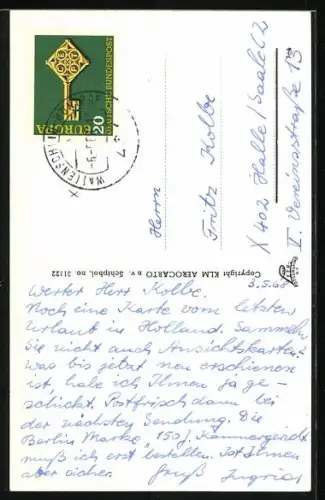 DEUTSCHE BUNDESPOST
20
EUROPA
CEPT
WATTENSCHEID
Herrn
Fritz Kolbe
X 402 Halle/Saale 2
I. Vereinsstraße 13
Copyright KLM AEROCARTO n.v. Schiphol, no. 31122
3.5.68
Werter Herr Kolbe.
Noch eine Karte vom letzten
Urlaub in Holland. Sammeln
Sie nicht auch Ansichtskarten?
Was bis jetzt neu erschienen
ist, habe ich Ihnen ja ge-
schickt. Postfrisch dann bei
der nächsten Sendung. Die
Berlin Marke „150 J. Kammergericht
muß ich erst bestellen. Ist Ihnen
aber sicher. Gruß